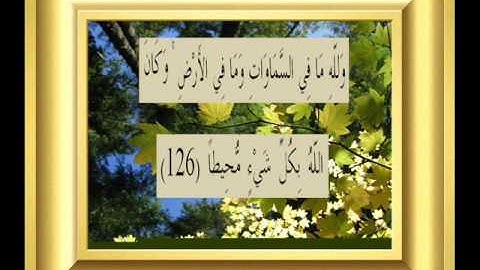 وَلِلَّهِ مَا فِي السَّمَاوَاتِ وَمَا فِي الأَرْضِ ۚ وَكَانَ
اللَّهُ بِكُلِّ شَيْءٍ مُّحِيطًا (126)